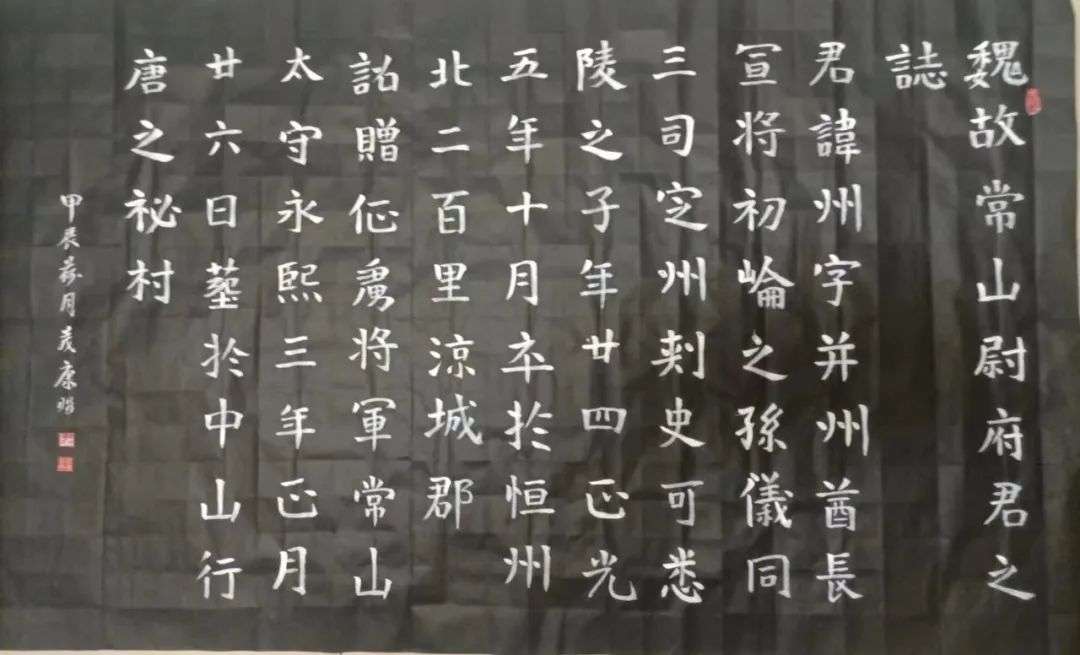 魏故常山尉府君之
誌
君諱州字并州酋長
宣将初崘之孫儀同
三司㝎州刾史可悉
陵之子年廿四正光
五年十月卒於恒州
北二百里涼城郡
詔贈征虜将軍常山
太守永熙三年正月
廿六日葬於中山行
唐之祕村
甲辰月康